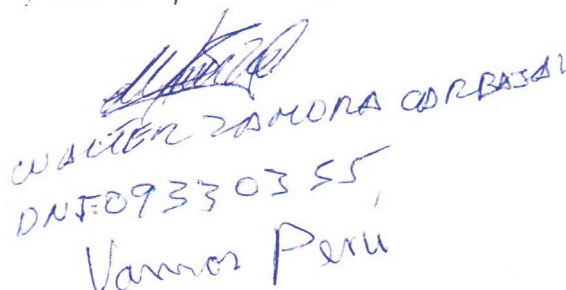 WALTER ZAMORA CARBAJAL
DNI:09330355
Vamos Perú